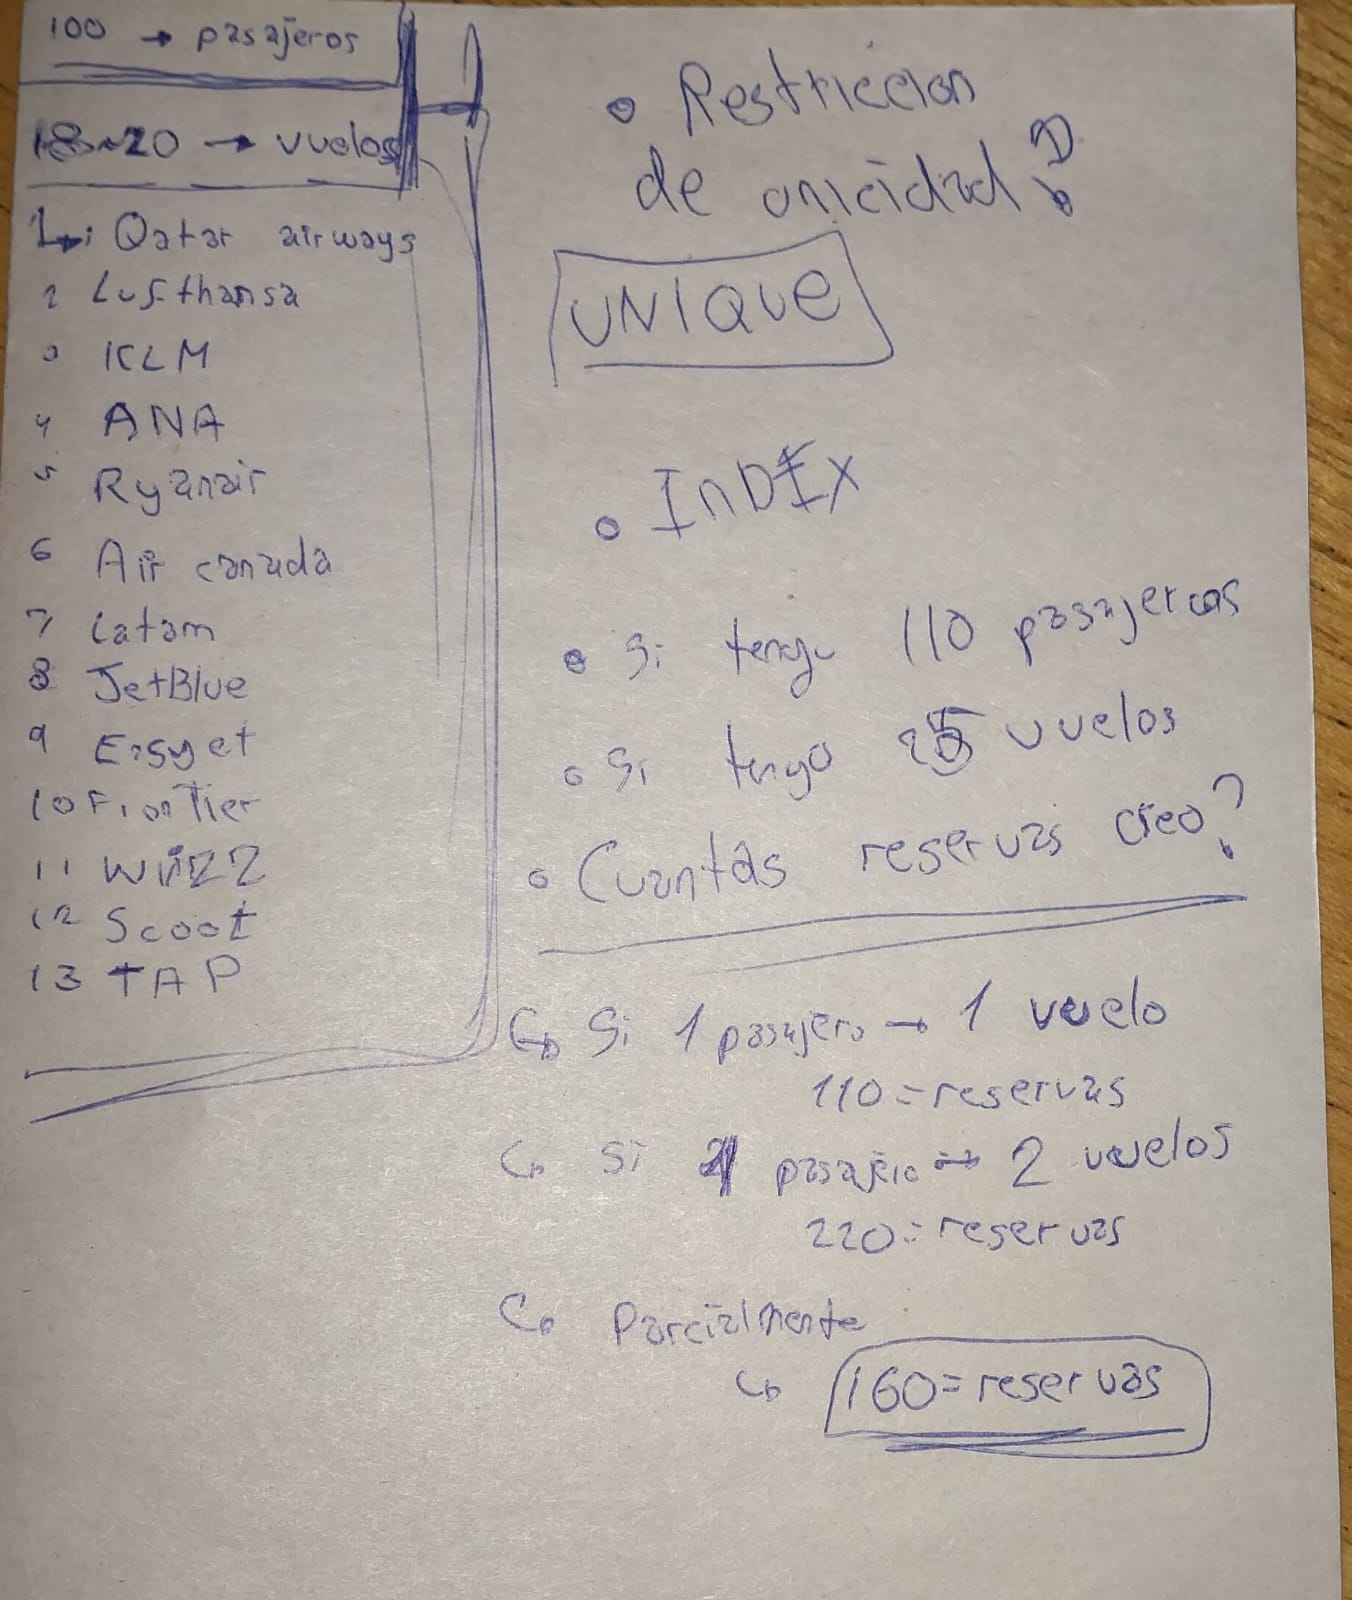 100 → pasajeros
18~20 → vuelos
1 Qatar airways
2 Lufthansa
3 KLM
4 ANA
5 Ryanair
6 Air canada
7 Latam
8 JetBlue
9 Easyjet
10 Frontier
11 Wizz
12 Scoot
13 TAP
• Restriccion
de unicidad?
UNIQUE
• InDEX
• Si tengo 110 pasajeros
• Si tengo 25 vuelos
• Cuantas reservas creo?
↳ Si 1 pasajero → 1 vuelo
110 = reservas
↳ Si 1 pasajero → 2 vuelos
220 = reservas
↳ Parcialmente
↳ 160 = reservas